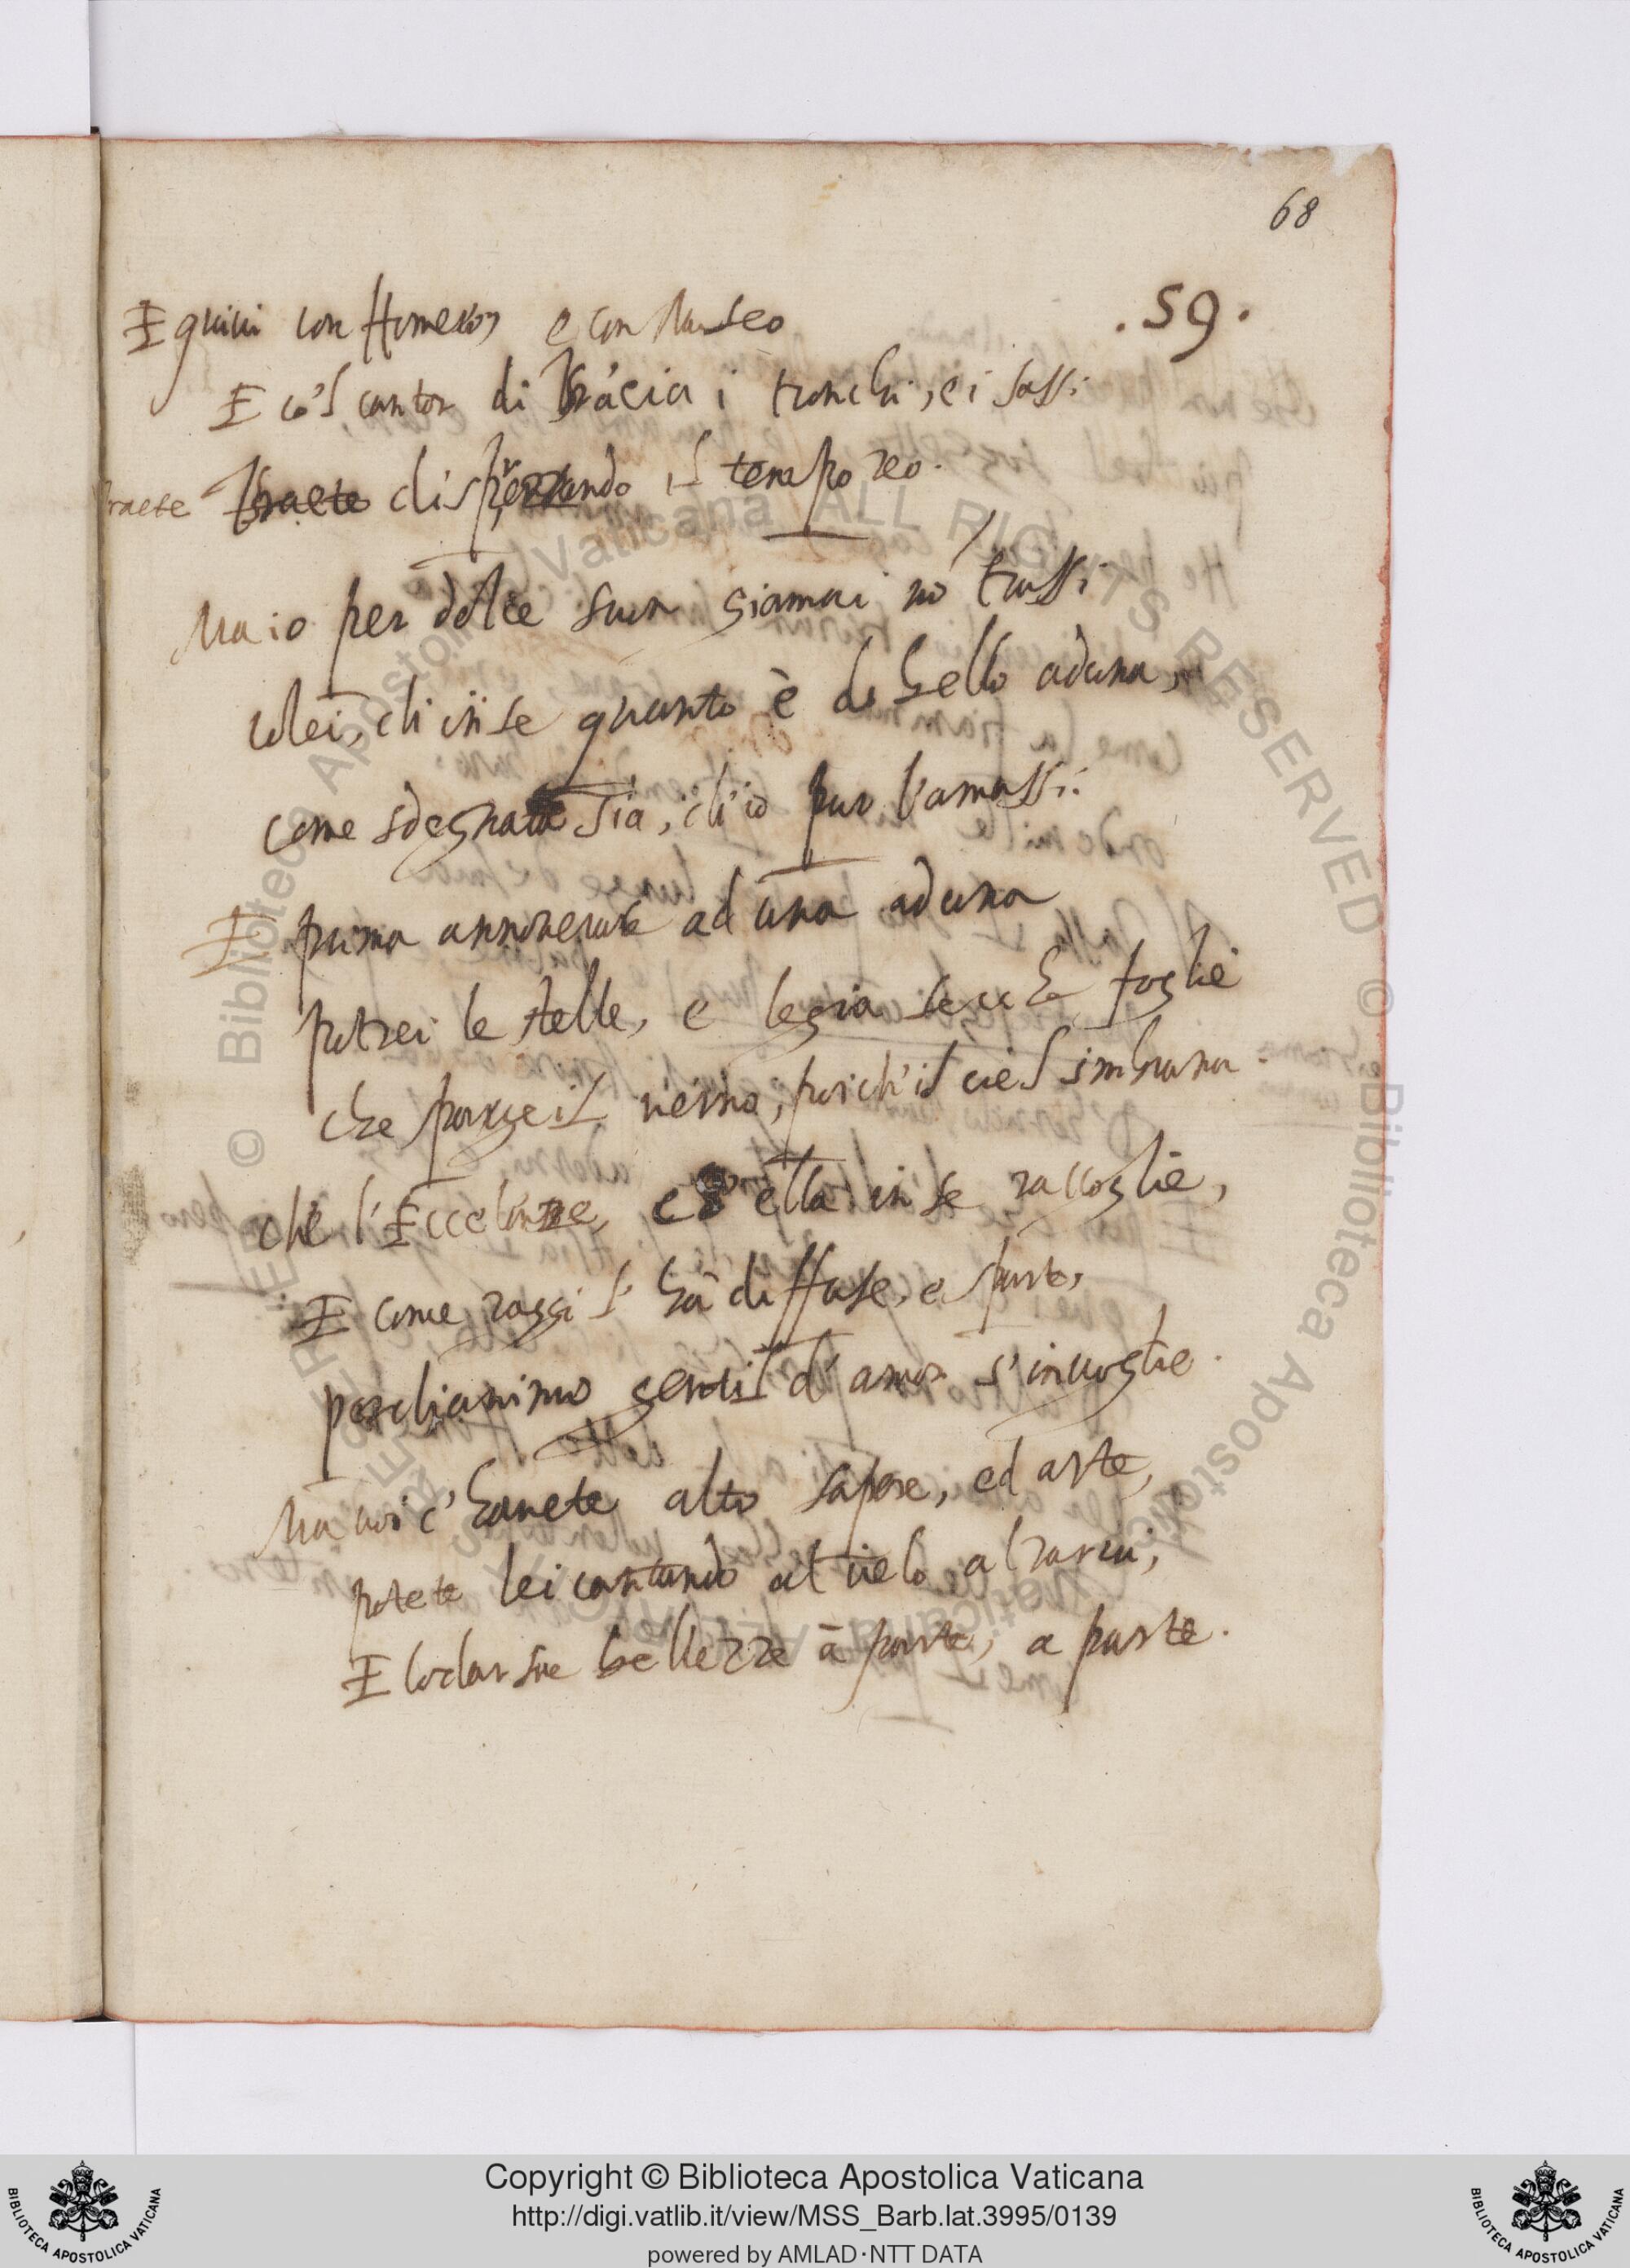 68
.59.
E quivi con Homero, e con Museo
E co'l cantor di Tracia i tronchi, e i sassi
Traete Traete disprezzando il tempo reo.
Ma io per dolce suon giamai nō trassi
colei, ch' in se quanto è di bello aduna,
come sdegnata sia, ch'io pur l'amassi.
E prima annoverare ad una ad una
potrei le stelle, e le già secche foglie
che sparge il verno, poich'il ciel s'imbruna.
che l'Eccelenze, ch' ella in se raccoglie,
E come raggi l' hà diffuse, e sparte,
perch'animo gentil d'amor s'invoglie.
Ma voi c'havete alto sapere, ed arte,
potete lei cantando al cielo alzarvi,
E lodar sue bellezze à parte, a parte.
© Biblioteca Apostolica Vaticana ALL RIGHTS RESERVED
© Biblioteca Apostolica Vaticana
Copyright © Biblioteca Apostolica Vaticana
http://digi.vatlib.it/view/MSS_Barb.lat.3995/0139
powered by AMLAD·NTT DATA
BIBLIOTECA APOSTOLICA VATICANA
BIBLIOTECA APOSTOLICA VATICANA